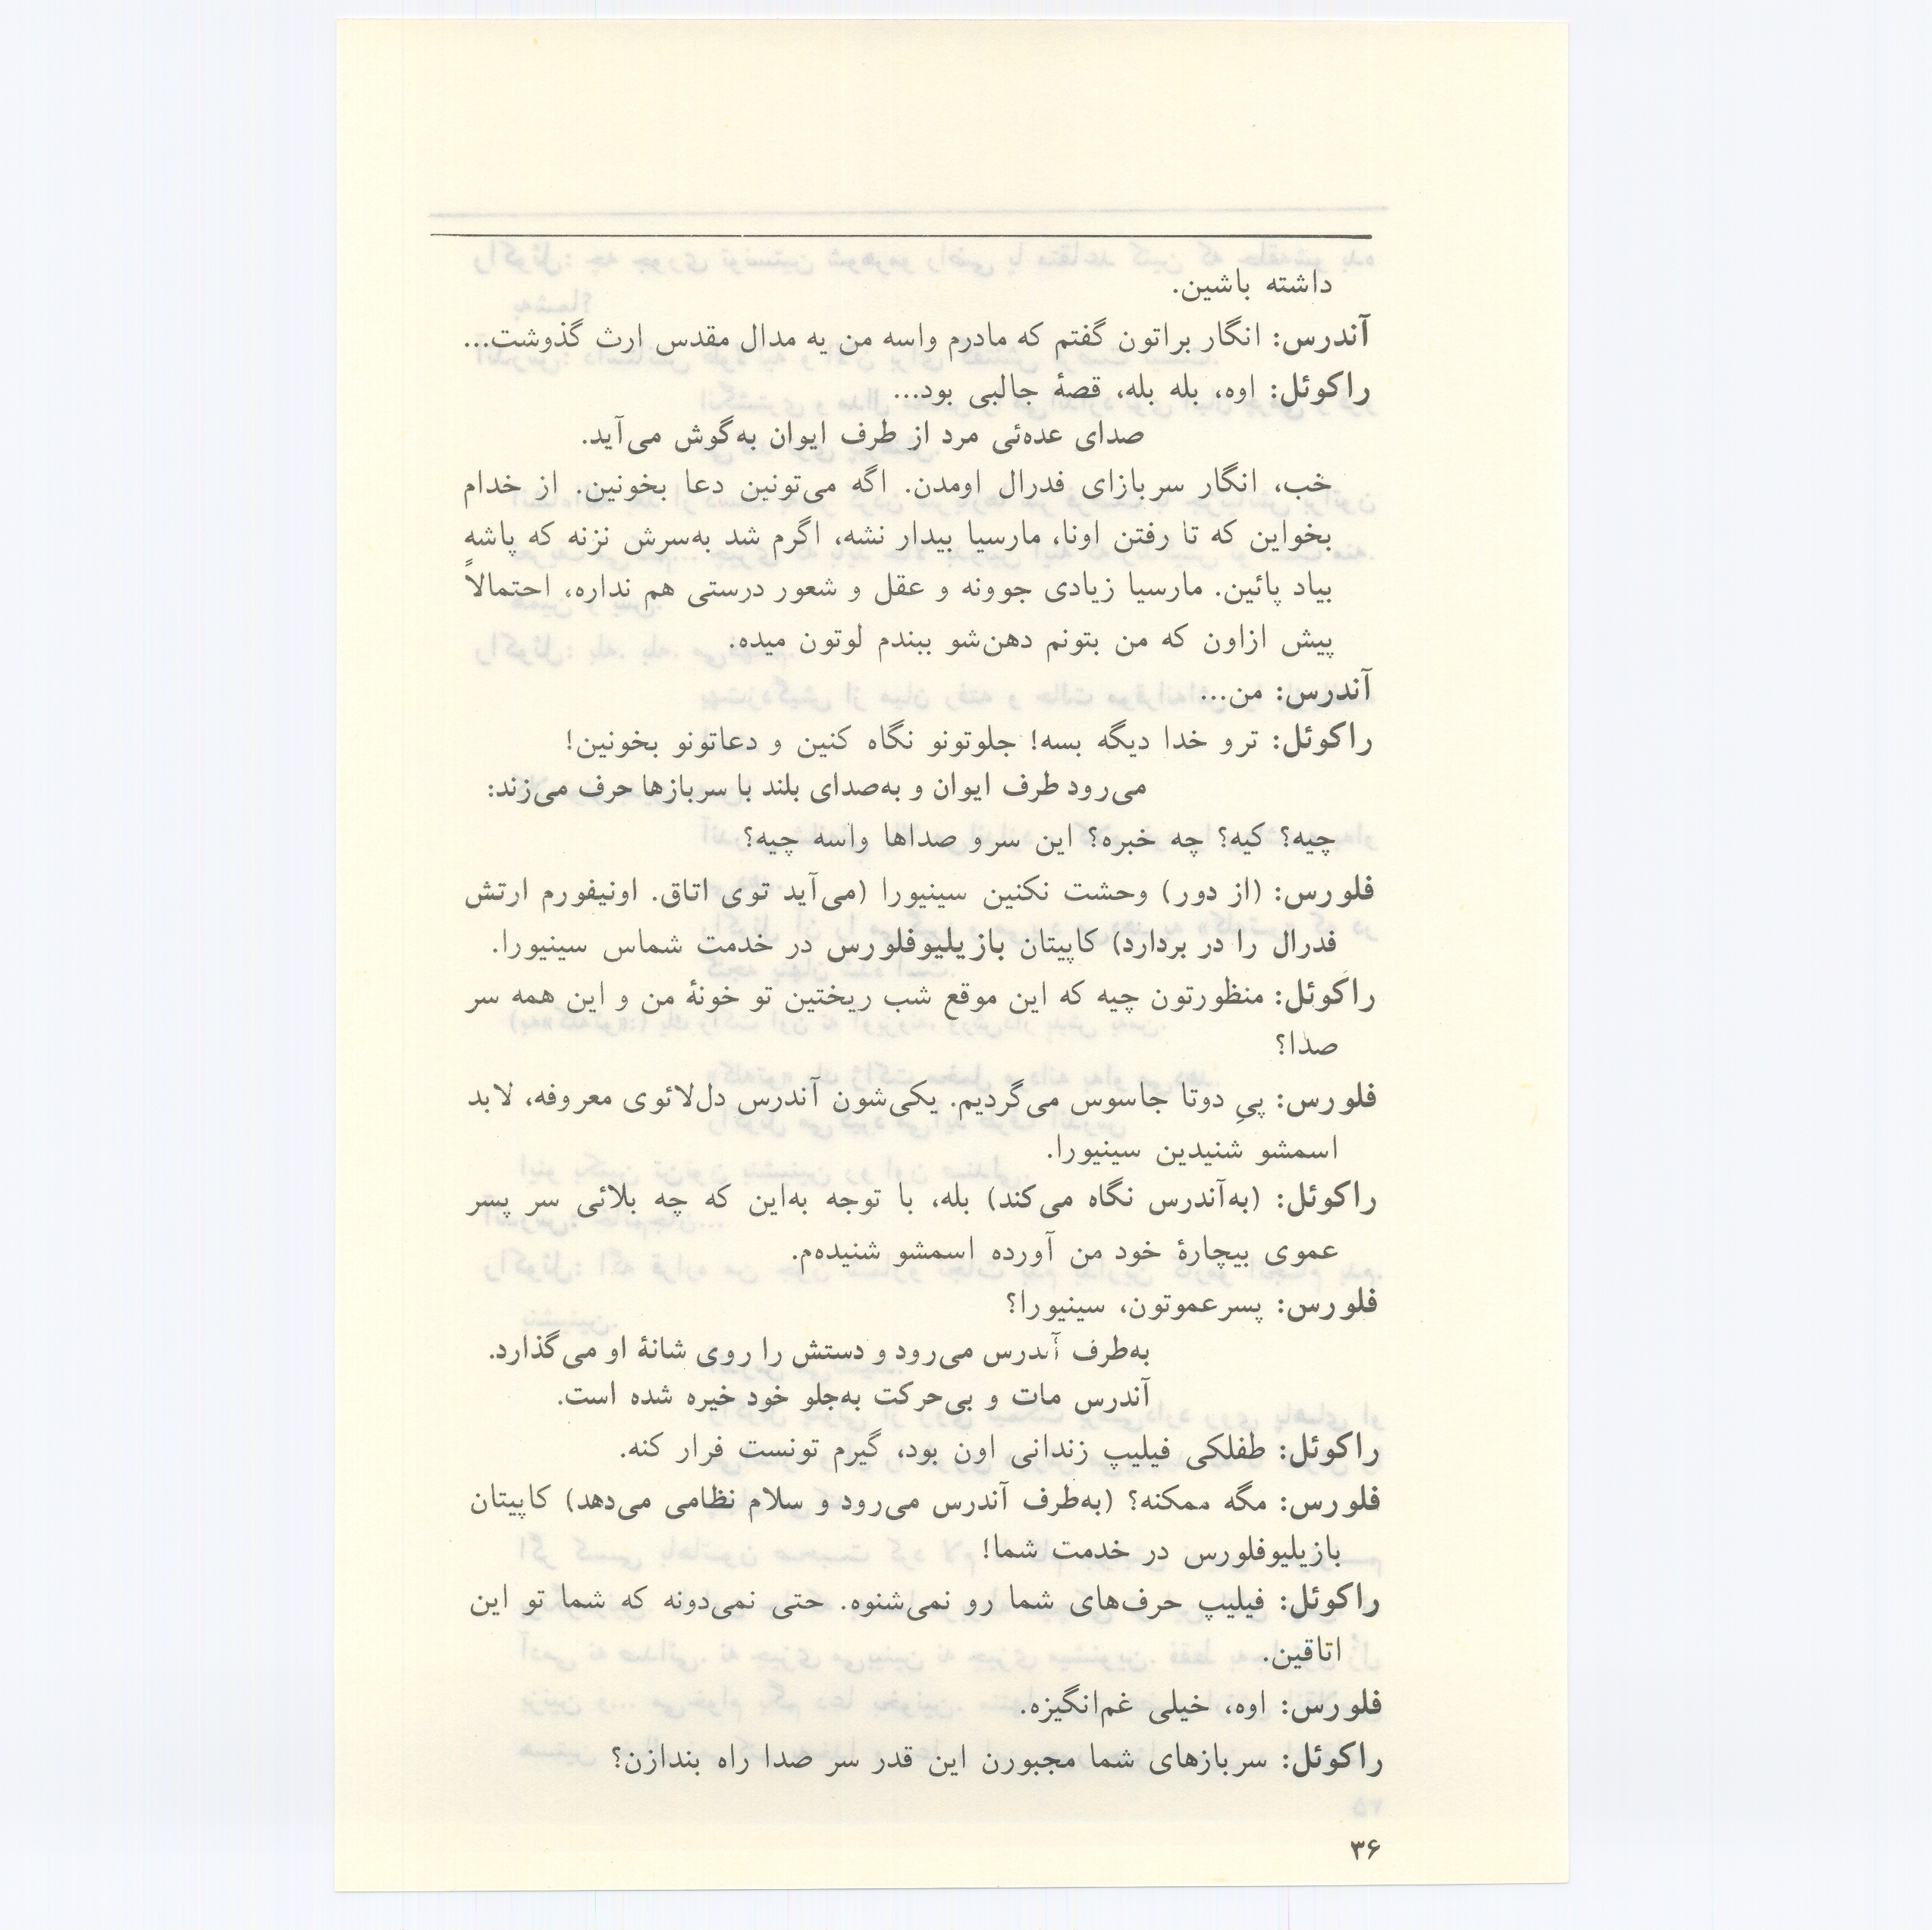 داشته باشین.
آندرس: انگار براتون گفتم که مادرم واسه من یه مدال مقدس ارث گذوشت...
راکوئل: اوه، بله بله، قصهٔ جالبی بود...
صدای عده‌ئی مرد از طرف ایوان به‌گوش می‌آید.
خب، انگار سربازای فدرال اومدن. اگه می‌تونین دعا بخونین. از خدام
بخواین که تا رفتن اونا، مارسیا بیدار نشه، اگرم شد به‌سرش نزنه که پاشه
بیاد پائین. مارسیا زیادی جوونه و عقل و شعور درستی هم نداره، احتمالاً
پیش ازاون که من بتونم دهن‌شو ببندم لوتون میده.
آندرس: من...
راکوئل: ترو خدا دیگه بسه! جلوتونو نگاه کنین و دعاتونو بخونین!
می‌رود طرف ایوان و به‌صدای بلند با سربازها حرف می‌زند:
چیه؟ کیه؟ چه خبره؟ این سرو صداها واسه چیه؟
فلورس: (از دور) وحشت نکنین سینیورا (می‌آید توی اتاق. اونیفورم ارتش
فدرال را در بردارد) کاپیتان بازیلیوفلورس در خدمت شماس سینیورا.
راکوئل: منظورتون چیه که این موقع شب ریختین تو خونهٔ من و این همه سر
صدا؟
فلورس: پیِ دوتا جاسوس می‌گردیم. یکی‌شون آندرس دل‌لائوی معروفه، لابد
اسمشو شنیدین سینیورا.
راکوئل: (به‌آندرس نگاه می‌کند) بله، با توجه به‌این که چه بلائی سر پسر
عموی بیچارهٔ خود من آورده اسمشو شنیده‌م.
فلورس: پسرعموتون، سینیورا؟
به‌طرف آندرس می‌رود و دستش را روی شانهٔ او می‌گذارد.
آندرس مات و بی‌حرکت به‌جلو خود خیره شده است.
راکوئل: طفلکی فیلیپ زندانی اون بود، گیرم تونست فرار کنه.
فلورس: مگه ممکنه؟ (به‌طرف آندرس می‌رود و سلام نظامی می‌دهد) کاپیتان
بازیلیوفلورس در خدمت شما!
راکوئل: فیلیپ حرف‌های شما رو نمی‌شنوه. حتی نمی‌دونه که شما تو این
اتاقین.
فلورس: اوه، خیلی غم‌انگیزه.
راکوئل: سربازهای شما مجبورن این قدر سر صدا راه بندازن؟
۳۶